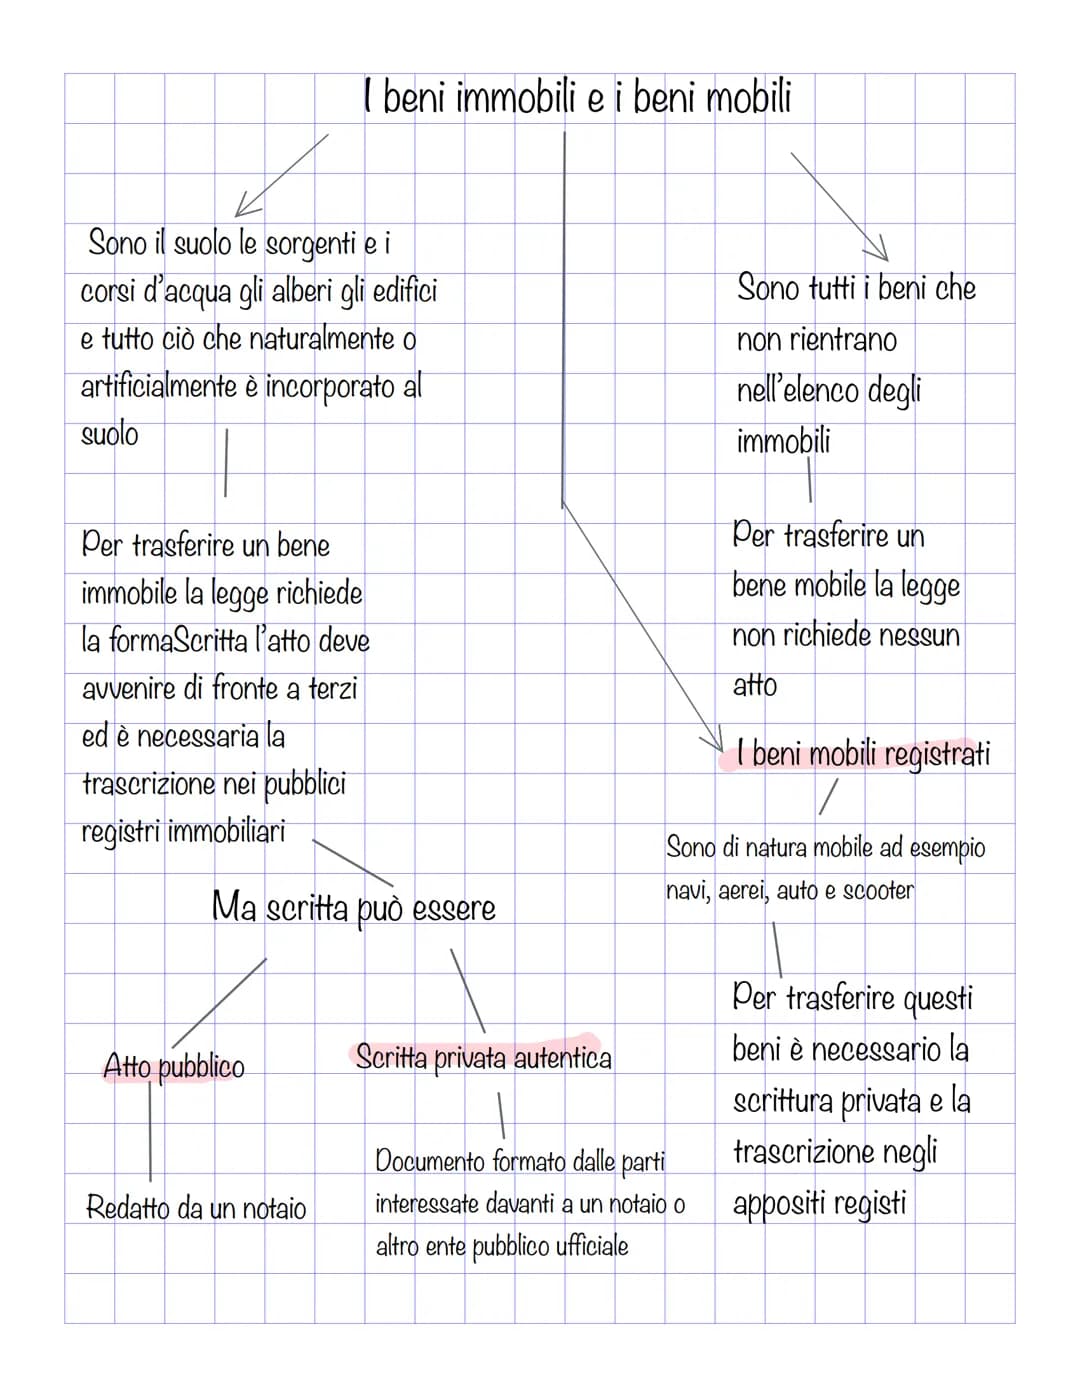 I beni immobili e i beni mobili
Sono il suolo le sorgenti e i
corsi d'acqua gli alberi gli edifici
e tutto ciò che naturalmente o
artificialmente è incorporato al
suolo
Per trasferire un bene
immobile la legge richiede
la formaScritta l'atto deve
avvenire di fronte a terzi
ed è necessaria la
trascrizione nei pubblici
registri immobiliari
Ma scritta può essere
Atto pubblico
Redatto da un notaio
Scritta privata autentica
Documento formato dalle parti
interessate davanti a un notaio o
altro ente pubblico ufficiale
Sono tutti i beni che
non rientrano
nell'elenco degli
immobili
Per trasferire un
bene mobile la legge
non richiede nessun
atto
I beni mobili registrati
Sono di natura mobile ad esempio
navi, aerei, auto e scooter
Per trasferire questi
beni è necessario la
scrittura privata e la
trascrizione negli
appositi registi